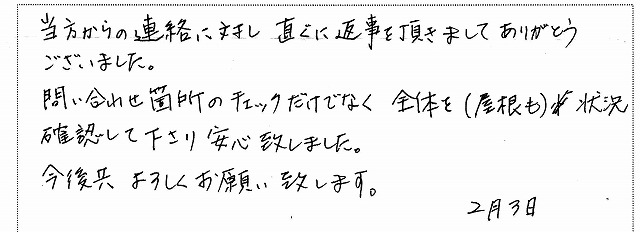 当方からの連絡に対し 直ぐに返事を頂きましてありがとう
ございました。
問い合わせ箇所のチェックだけでなく 全体を(屋根も)状況
確認して下さり 安心致しました。
今後共 よろしくお願い致します。
2月3日